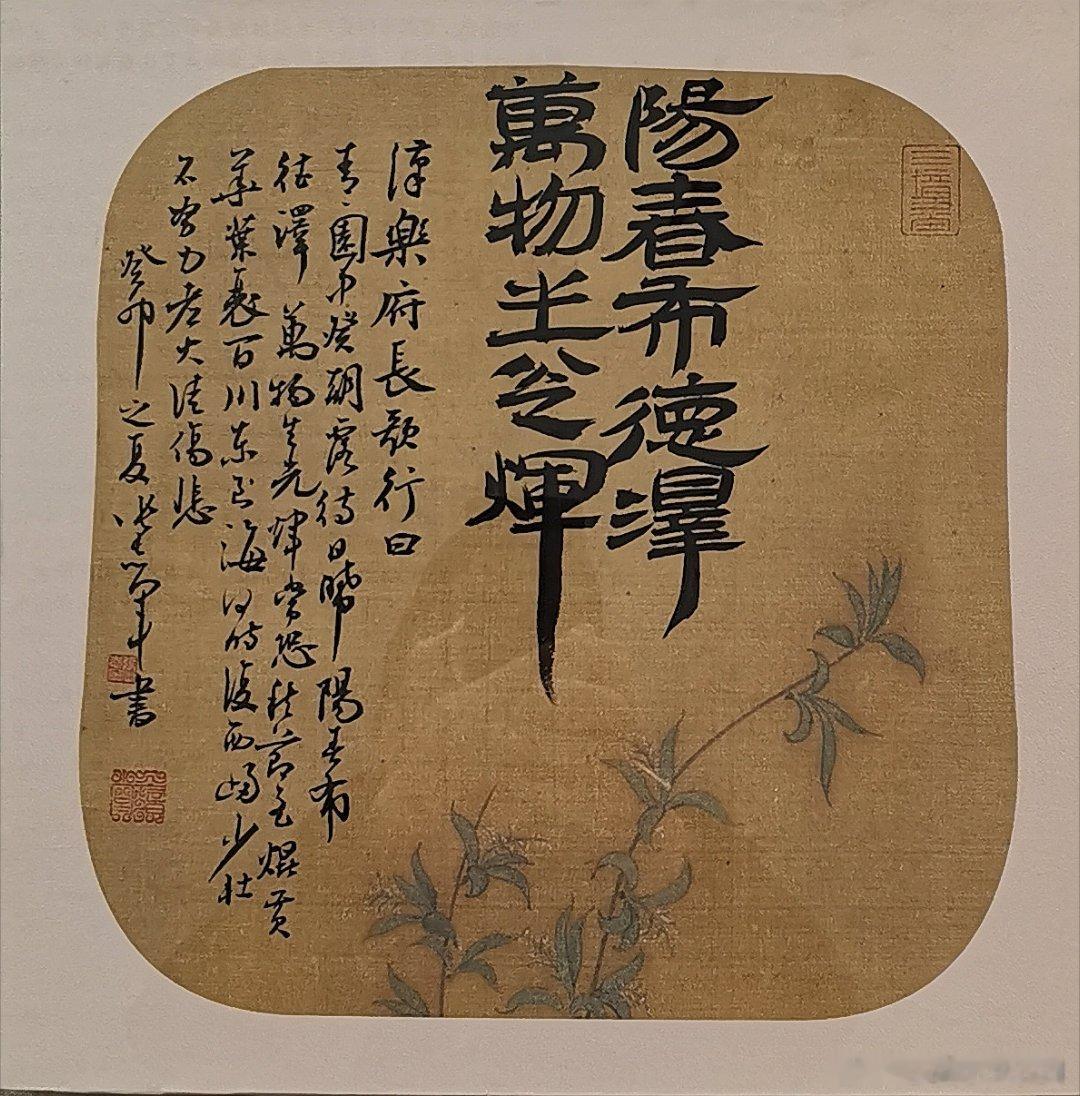 陽春布德澤
萬物生光煇
漢樂府長歌行曰
青〻園中葵朝露待日晞陽春布
德澤萬物生光煇常恐秋節至焜黃
華葉衰百川東到海何時復西歸少壯
不努力老大徒傷悲
癸卯之夏 書